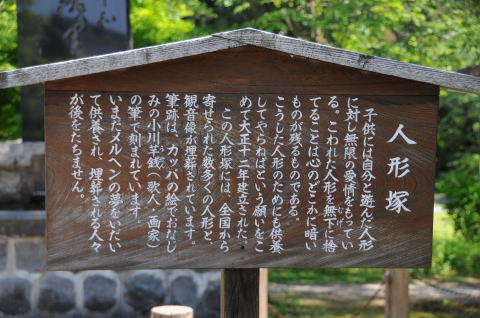 人形塚
子供には自分と遊んだ人形
に対し無限の愛情をもってい
る。こわれた人形を無下に捨
てることは心のどこかに暗い
ものが残るものである。
こうした人形のためにも供養
してやらねばという願いをこ
めて大正十二年建立された。
この人形塚には、全国から
寄せられた数多くの人形と、
観音像が埋葬されています。
筆跡は、カッパの絵でおなじ
みの小川芋銭(歌人・画家)
の筆で刻まれています。
いまだメルヘンの夢をいだい
て供養され、埋葬される人々
が後をたちません。